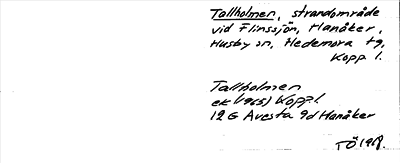 Tallholmen, strandområde
vid Flinssjön, Hanåker,
Husby sn, Hedemora tg,
Kopp l.
Tallholmen
ek (1965) Kopp l
12 G Avesta 9d Hanåker
TÖ 1968.